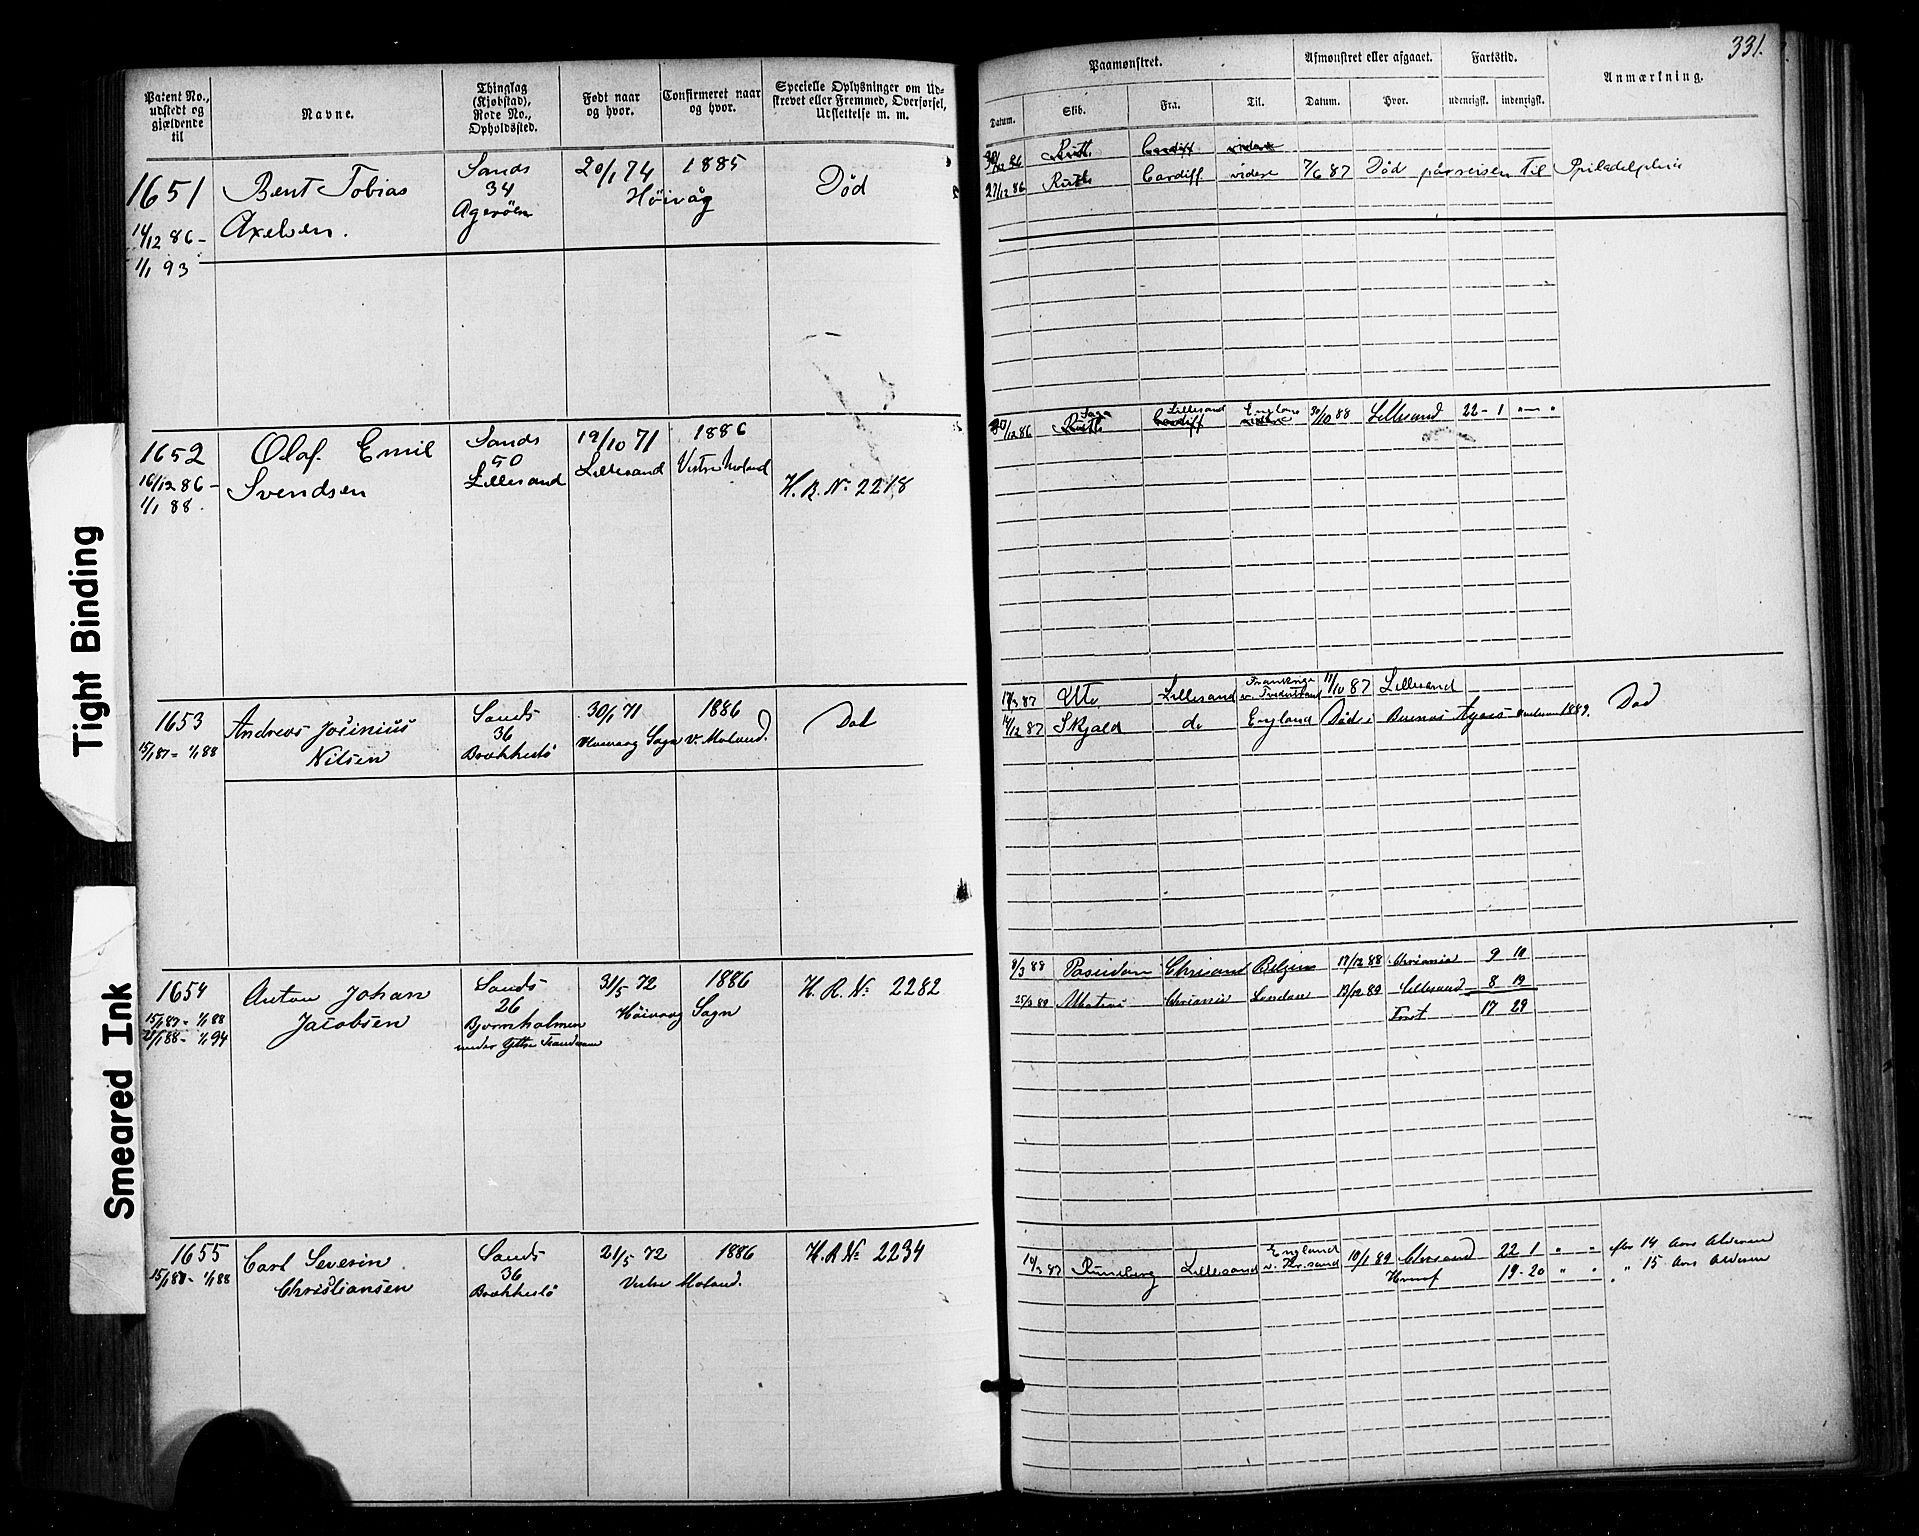 331.
Patent No., udstedt og gjældende til
Navne.
Thinglag (Kjøbstad), Rode No., Opholdssted.
Født naar og hvor.
Confirmeret naar og hvor.
Specielle Oplysninger om Udskrevet eller Fremmed, Overførsel, Udslettelse m. m.
Paamønstret.
Datum. Skib. Fra. Til.
Afmønstret eller afgaaet.
Datum. Hvor.
Fartstid.
udenrigsk. indenrigsk.
Anmærkning.
1651
14/12 86 -
1/1 93
Bent Tobias
Axelsen.
Sands
34
Agerøen
20/1 74
1885
Høivåg
Død
Ruth Cardiff videre
27/12 86 Ruth Cardiff videre 7/6 87 Død på reisen til Philadelphia
1652
16/12 86 -
1/1 88.
Olaf Emil
Svendsen
Sands
50
Lillesand
19/10 71
Lillesand
1886
Vestre Moland
H.R. No 2218
Saga Lillesand England
/12 86 Ruth Cardiff videre 30/10 88 Lillesand 22 - 1 " - "
1653
15/1 87 - 1/1 88
Andreas
Nilsen
Sands
36
Brækkestø
30/1 71
Sogn
1886
V. Moland.
Død
17/3 87 Lillesand Frankrige 11/10 87 Lillesand
14/12 87 Skjald do England Døde i Buenos Ayres 1889. Død
1654
15/1 87 - 1/1 88
1/88 - 1/1 94
Anton Johan
Jacobsen
Sands
26
Bjørnholmen
under Ytre
31/5 72
1886
Høivaag Sogn
H.R. No 2282
8/3 88 Chrisand Belgien 18/12 88 Chriania 9 10
25/2 89 Chriania London 13/12 89 Lillesand 8 19
17 29
1655
15/1 87 - 1/1 88
Carl Severin
Christiansen
Sands
36
Brækkestø
21/5 72
1886
Vestre Moland.
H.R. No 2234
14/3 87 Runeberg Lillesand England v. Chr.sand 10/1 89 Chrsand 22 1 " " efter 14 Aars Alderen
19 - 20 " " " 15 Aars Alderen
Tight Binding
Smeared Ink